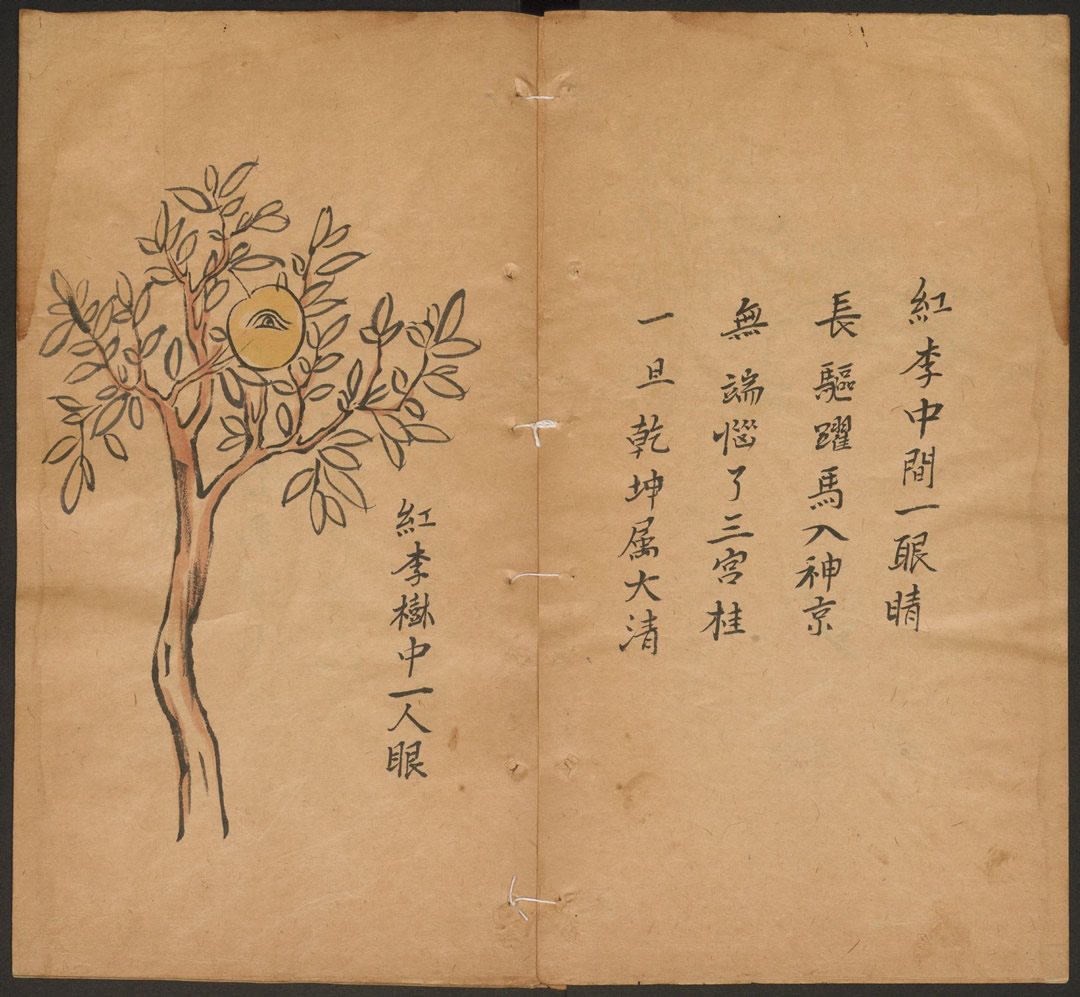 紅李中間一眼睛
長驅躍馬入神京
無端惱了三宮桂
一旦乾坤属大清
紅李樹中一人眼